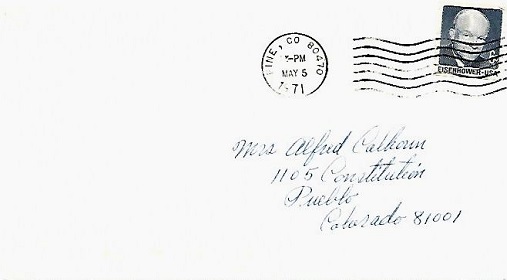 PINE, CO 80470
PM
MAY 5
71
EISENHOWER·USA
Mrs Alfred Calhoun
1105 Constitution
Pueblo
Colorado 81001